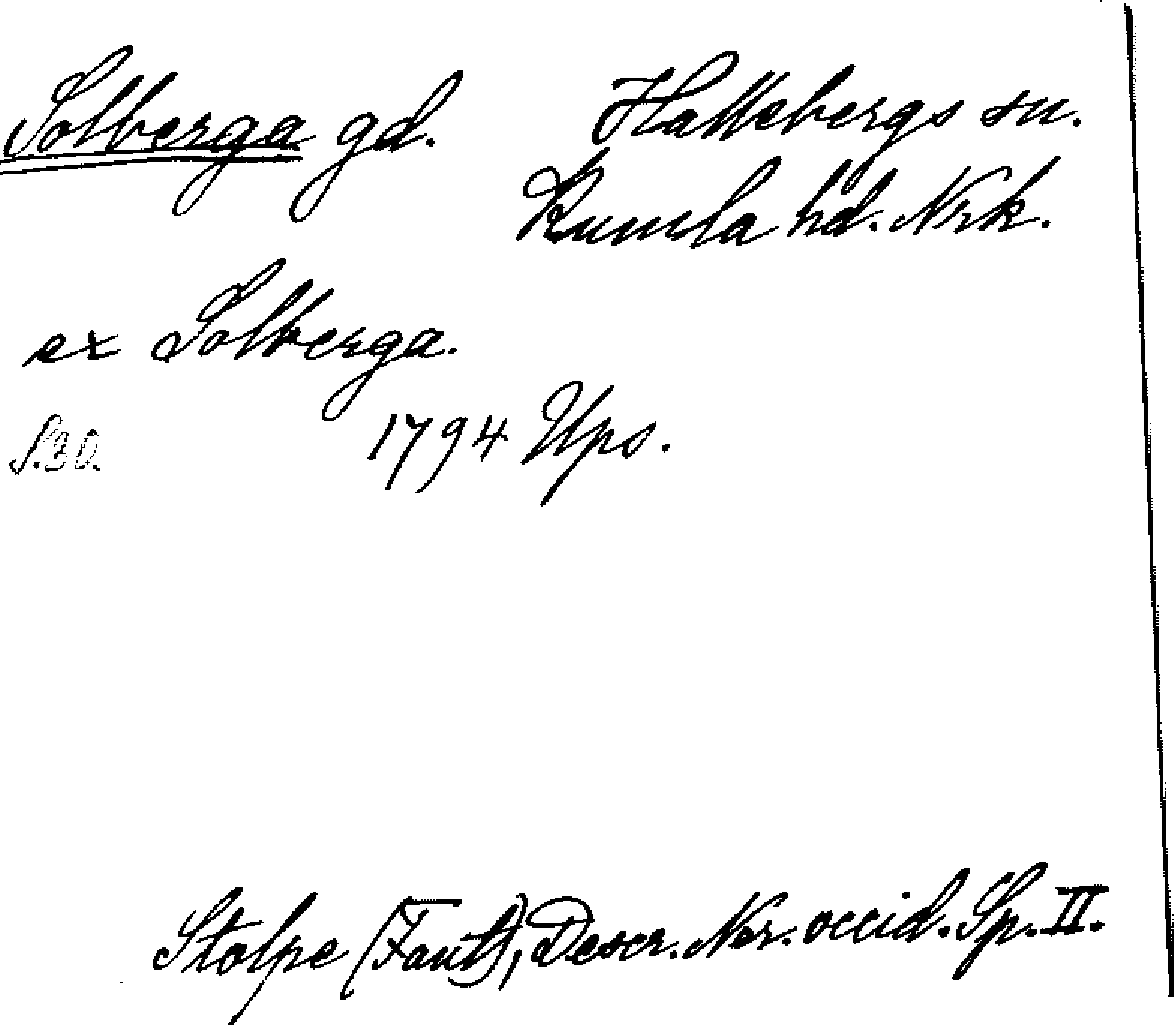 Solberga gd. Hallsbergs sn.
Kumla hd. Nrk.
ex Solberga.
S. 30. 1794 Ups.
Stolpe (Fant), Descr. Ner. occid. Sp. II.